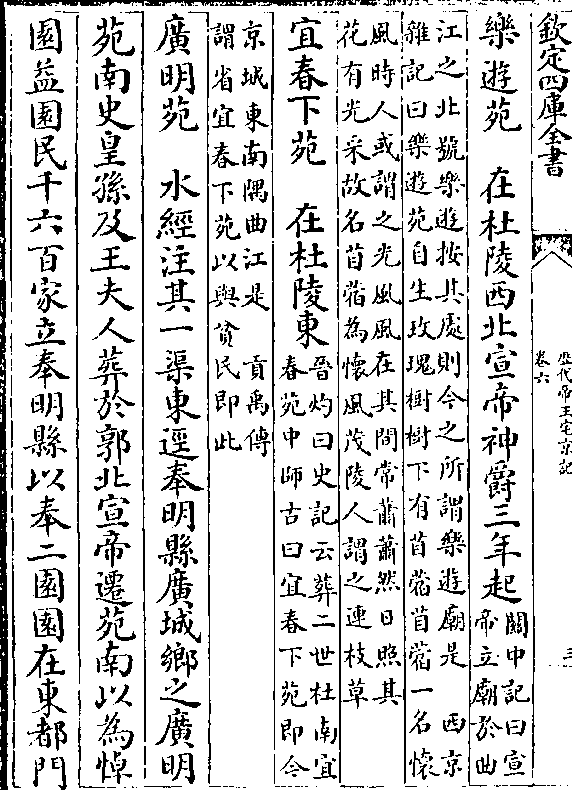 欽定四庫全書
歷代帝王宅京記
卷六
三
樂遊苑　在杜陵西北宣帝神爵三年起關中記曰宣
帝立廟於曲
江之北號樂遊按其處則今之所謂樂遊廟是　西京
雜記曰樂遊苑自生玫瑰樹樹下有苜蓿苜蓿一名懷
風時人或謂之光風風在其間常蕭蕭然日照其
花有光采故名苜蓿為懷風茂陵人謂之連枝草
宜春下苑　在杜陵東晉灼曰史記云葬二世杜南宜
春苑中師古曰宜春下苑即今
京城東南隅曲江是　貢禹傳
謂省宜春下苑以與貧民即此
廣明苑　水經注其一渠東逕奉明縣廣城鄉之廣明
苑南史皇孫及王夫人葬於郭北宣帝遷苑南以為悼
園益園民千六百家立奉明縣以奉二園園在東都門